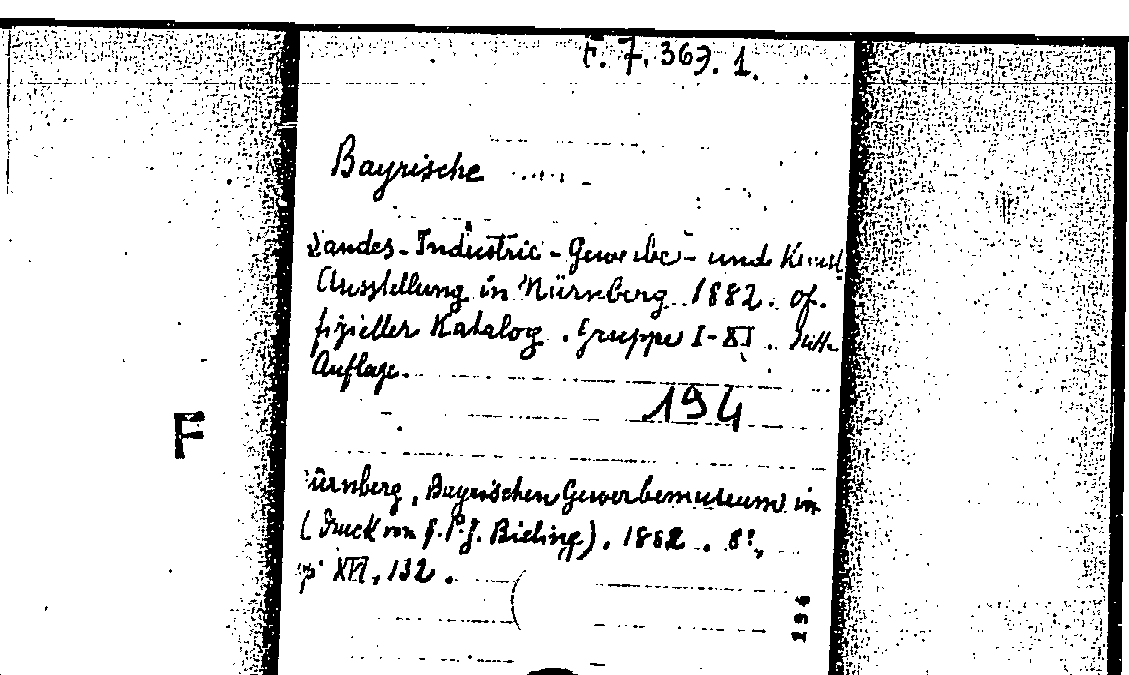 F. 7. 363. 1.
Bayrische
Landes-Industrie-Gewerbe- und Kunst
Ausstellung in Nürnberg 1882. Of-
fizieller Katalog. Gruppe I-XI.
Auflage.
194
F
ürnberg, Bayrischen Gewerbemuseum in
(Druck von G.P.J. Bieling). 1882. 8º,
p. XVI, 132.
194